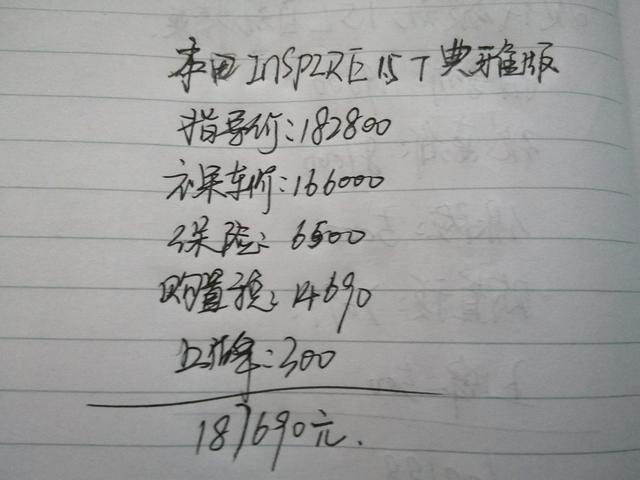 本田INSPIRE 15T典雅版
指导价:182800
裸车价:166000
保险:6500
购置税:14690
上牌:300
187690元.